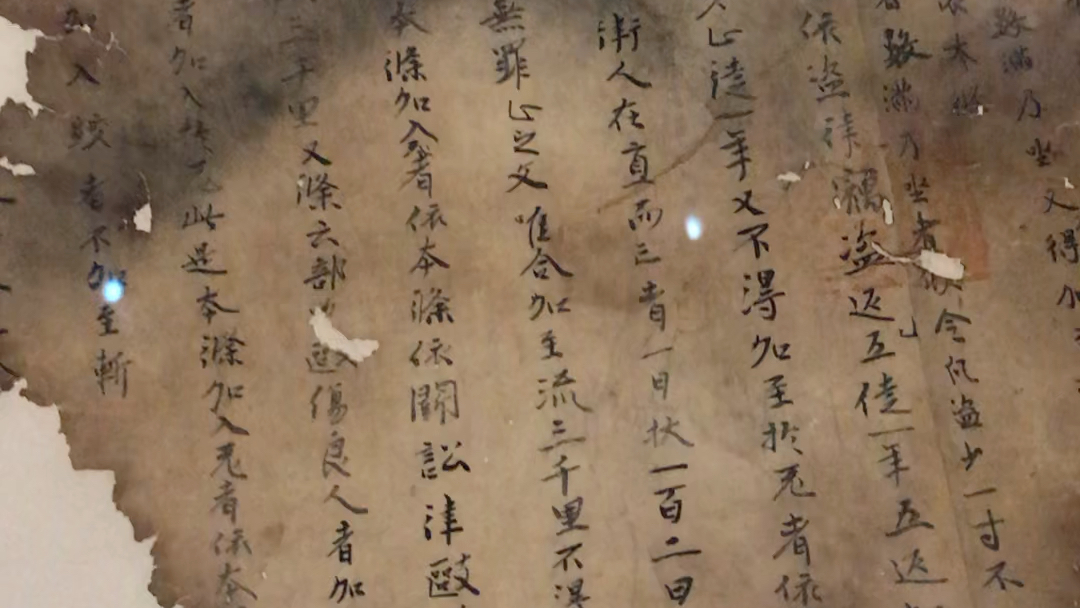 數滿乃坐又得加
數滿乃坐者假令凡盜少一寸不
依盜律竊盜疋五徒一年五疋
止徒一年又不得加至於死者依
衛人在直而亡者一日杖一百二日
無罪止之文唯合加至流三千里不得
本條加入者依本條依鬬訟律毆
三千里又條云部曲毆傷良人者加
者加入死此是本條加入死者依本
加入絞者不加至斬